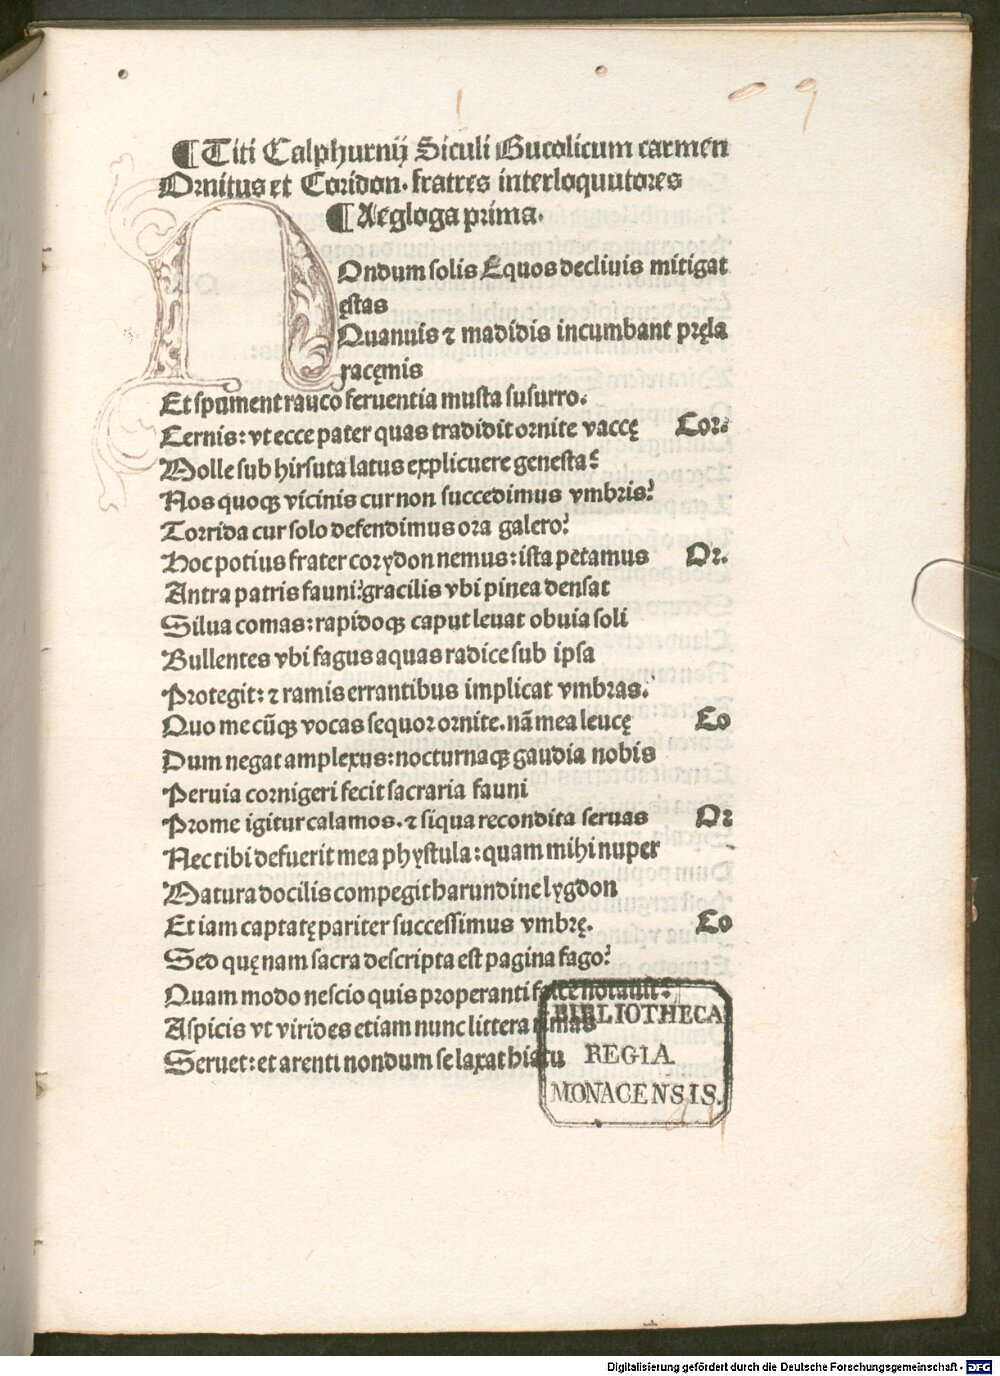 9
¶Titi Calphurnij Siculi Bucolicum carmen
Ornitus et Coridon. fratres interloquutores
¶Aegloga prima.
NOndum solis Equos decliuis mitigat
ęstas
Quanuis ⁊ madidis incumbant pręla
racęmis
Et spument rauco feruentia musta susurro.
Cernis: vt ecce pater quas tradidit ornite vaccę Cor.
Molle sub hirsuta latus explicuere genesta?
Nos quoqꝫ vicinis cur non succedimus vmbris?
Torrida cur solo defendimus ora galero?
Hoc potius frater corydon nemus: ista petamus Or.
Antra patris fauni? gracilis vbi pinea densat
Silua comas: rapidoqꝫ caput leuat obuia soli
Bullentes vbi fagus aquas radice sub ipsa
Protegit: ⁊ ramis errantibus implicat vmbras.
Quo me cũqꝫ vocas sequor ornite. nã mea leucę Co
Dum negat amplexus: nocturnaqꝫ gaudia nobis
Peruia cornigeri fecit sacraria fauni
Prome igitur calamos. ⁊ siqua recondita seruas Or
Nec tibi defuerit mea phystula: quam mihi nuper
Matura docilis compegit harundine lygdon
Et iam captatę pariter successimus vmbrę. Co
Sed quęnam sacra descripta est pagina fago?
Quam modo nescio quis properanti falce notauit?
Aspicis vt virides etiam nunc littera rimas
Seruet: et arenti nondum se laxat hiatu
BIBLIOTHECA
REGIA
MONACENSIS.
Digitalisierung gefördert durch die Deutsche Forschungsgemeinschaft - DFG